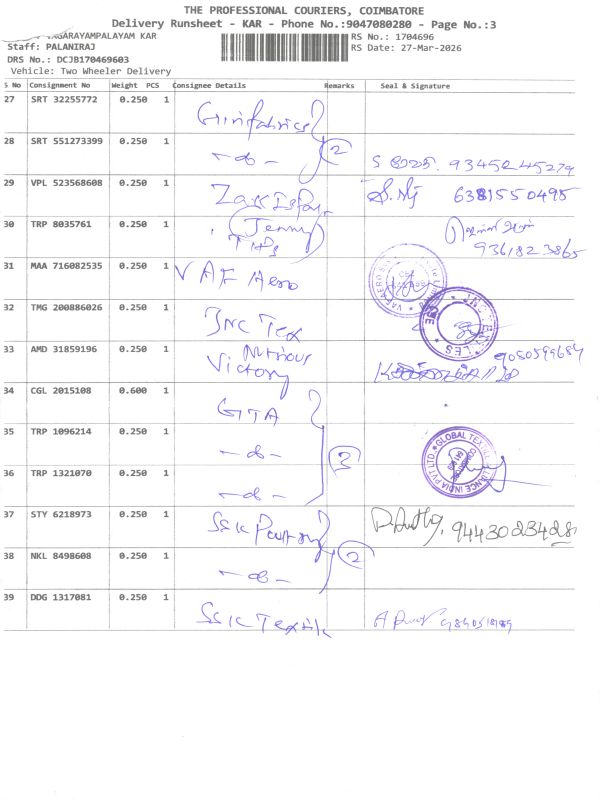 THE PROFESSIONAL COURIERS, COIMBATORE
Delivery Runsheet - KAR - Phone No.:9047080280 - Page No.:3
GARAYAMPALAYAM KAR
RS No.: 1704696
Staff: PALANIRAJ
RS Date: 27-Mar-2026
DRS No.: DCJB170469603
Vehicle: Two Wheeler Delivery
S No Consignment No Weight PCS Consignee Details Remarks Seal & Signature
27 SRT 32255772 0.250 1
28 SRT 551273399 0.250 1 - do - 2 93452 45279
29 VPL 523568608 0.250 1 6381550495
30 TRP 8035761 0.250 1 (Jenny) 9361823865
31 MAA 716082535 0.250 1 VAF Aero
32 TMG 200886026 0.250 1 JNC Tex
33 AMD 31859196 0.250 1 Nutrious Victory
34 CGL 2015108 0.600 1 GTA
35 TRP 1096214 0.250 1 - do - 3 GLOBAL TEXTILE ALLIANCE INDIA PVT LTD
36 TRP 1321070 0.250 1 - do -
37 STY 6218973 0.250 1 SSK 9443023428
38 NKL 8498608 0.250 1 - do - 2
39 DDG 1317081 0.250 1 SSK Textile